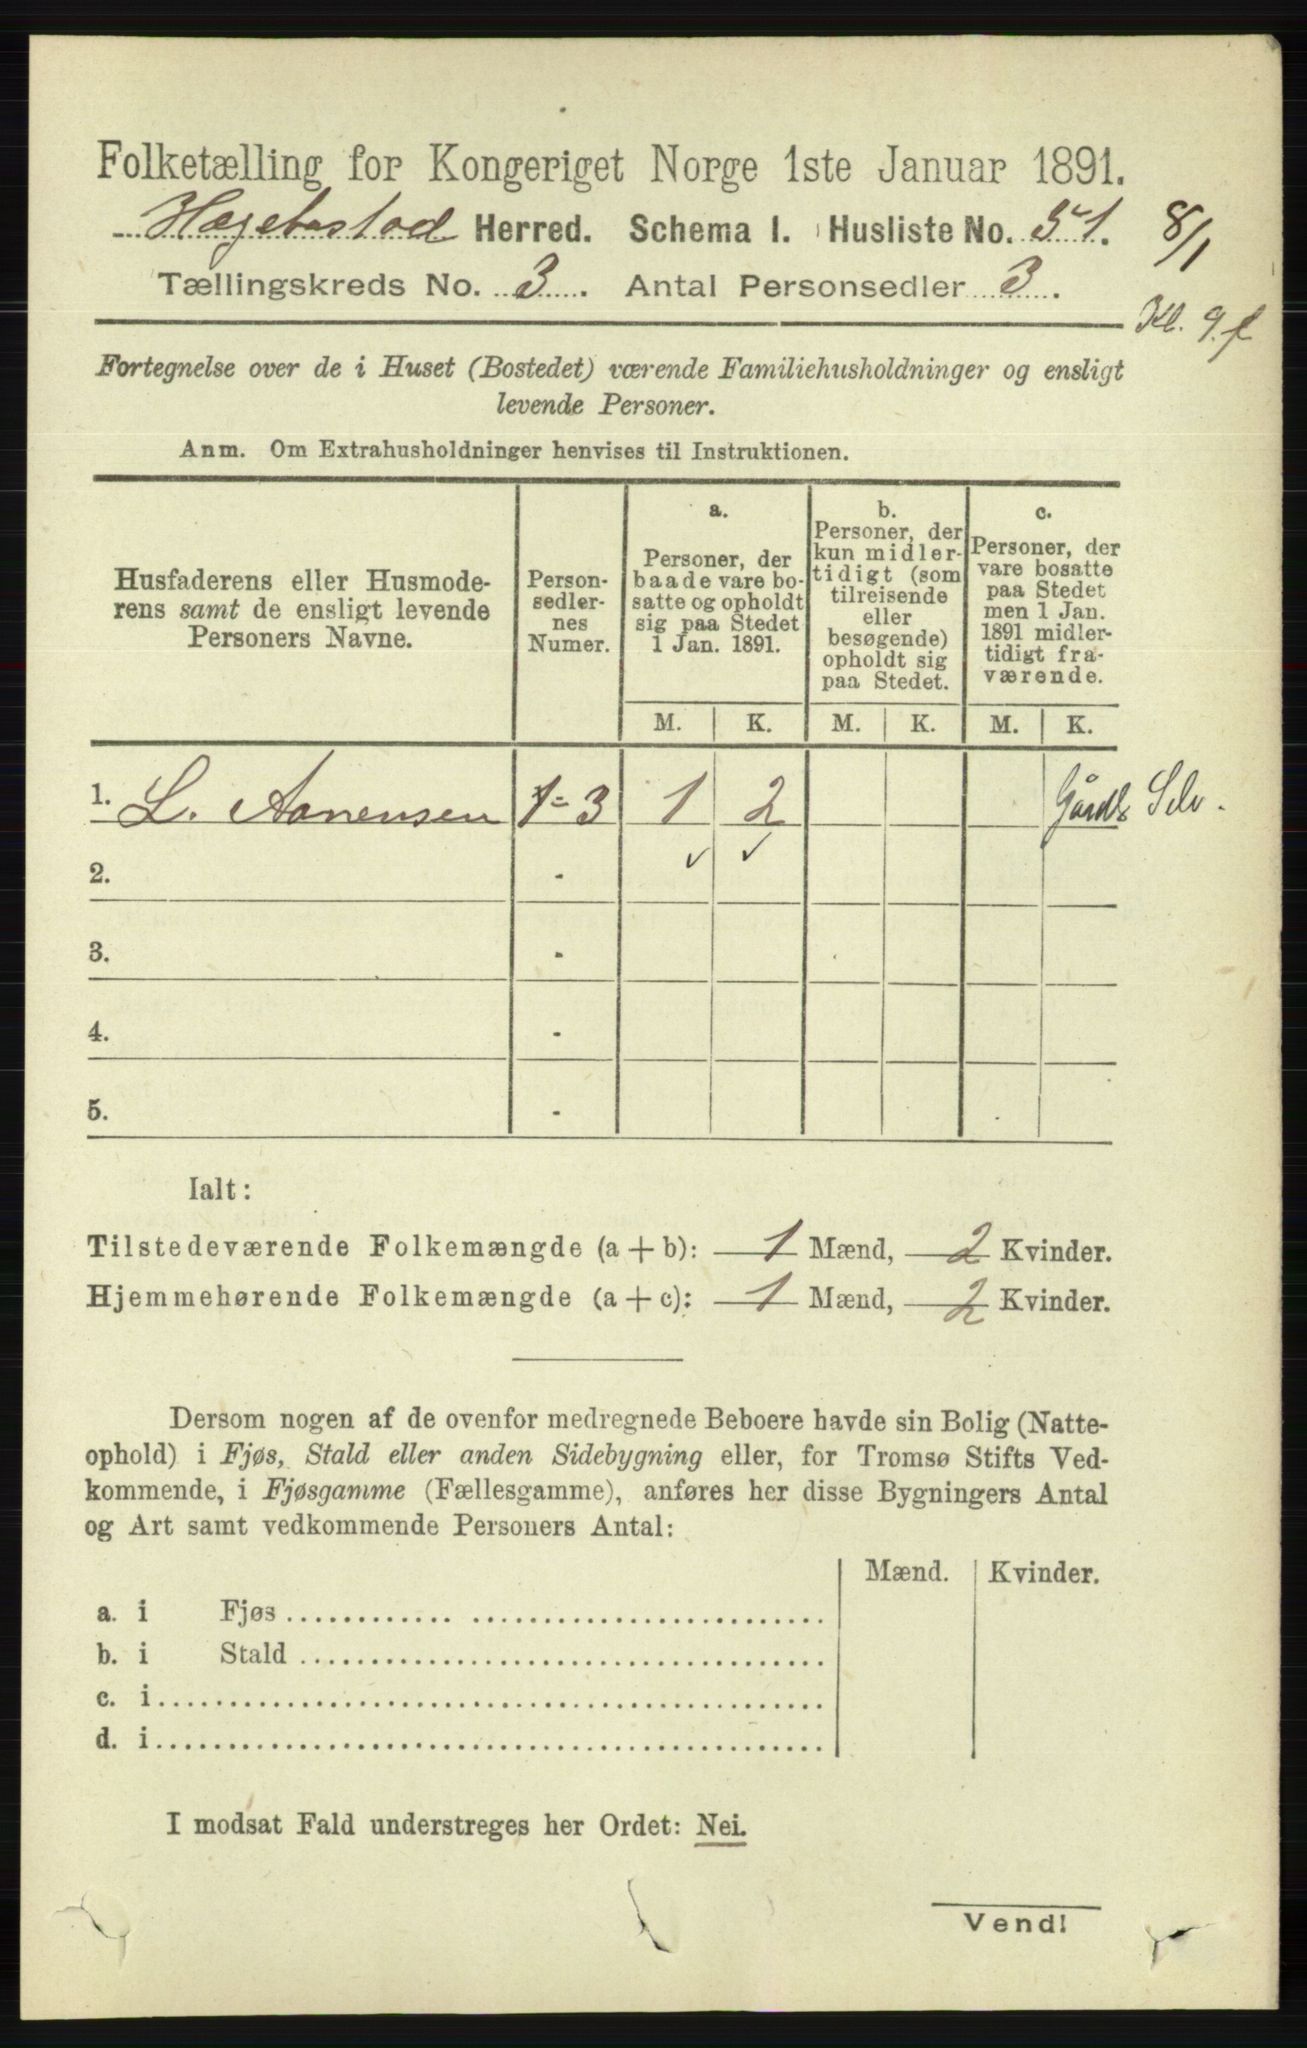 Folketælling for Kongeriget Norge 1ste Januar 1891.
Hægebostad Herred. Schema I. Husliste No. 51. 8/1
Tællingskreds No. 3. Antal Personsedler 3.
Kl. 9. f
Fortegnelse over de i Huset (Bostedet) værende Familiehusholdninger og ensligt
levende Personer.
Anm. Om Extrahusholdninger henvises til Instruktionen.
Husfaderens eller Husmode-
rens samt de ensligt levende
Personers Navne.
Person-
sedler-
nes
Numer.
a.
Personer, der
baade vare bo-
satte og opholdt
sig paa Stedet
1 Jan. 1891.
b.
Personer, der
kun midler-
tidigt (som
tilreisende
eller
besøgende)
opholdt sig
paa Stedet.
c.
Personer, der
vare bosatte
paa Stedet
men 1 Jan.
1891 midler-
tidigt fra-
værende.
M. K. M. K. M. K.
1. L. Aanensen 1-3 1 2 Gaardb Selv.
2. - ✓ ✓
3. -
4. -
5. -
Ialt:
Tilstedeværende Folkemængde (a + b): 1 Mænd, 2 Kvinder.
Hjemmehørende Folkemængde (a + c): 1 Mænd, 2 Kvinder.
Dersom nogen af de ovenfor medregnede Beboere havde sin Bolig (Natte-
ophold) i Fjøs, Stald eller anden Sidebygning eller, for Tromsø Stifts Ved-
kommende, i Fjøsgamme (Fællesgamme), anføres her disse Bygningers Antal
og Art samt vedkommende Personers Antal:
Mænd. Kvinder.
a. i Fjøs
b. i Stald
c. i
d. i
I modsat Fald understreges her Ordet: Nei.
Vend!